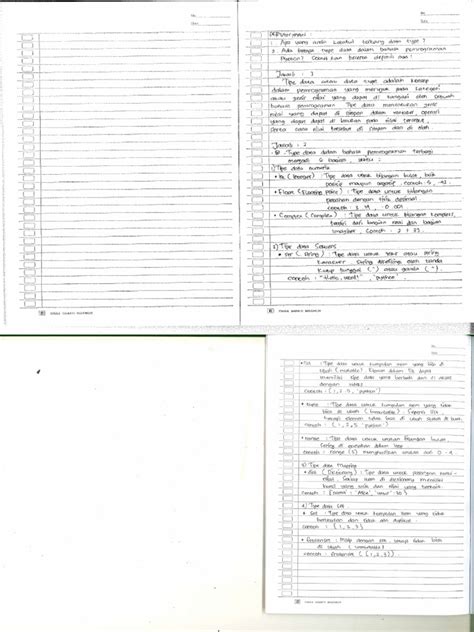 No.
Date
No.
Date
Pertanyaan :
1. Apa yang anda ketahui tentang data type?
2. Ada berapa tipe data dalam bahasa pemrograman
Python? Sebutkan beserta definisi nya!
Jawab : 1
Tipe data atau data type adalah konsep
dalam pemrograman yang merujuk pada kategori
atau jenis nilai yang dapat di tangani oleh sebuah
bahasa pemrograman. Tipe data menentukan jenis
nilai yang dapat di simpan dalam variabel, operasi
yang dapat di lakukan pada nilai tersebut,
serta cara nilai tersebut di simpan dan di olah.
Jawab : 2
Type data dalam bahasa pemrograman terbagi
menjadi 6 bagian, yaitu :
1) Tipe data numerik
• Int (Integer) : Tipe data untuk bilangan bulat, baik
positif maupun negatif, contoh : 5, -12
• Float (Floating Point) : Tipe data untuk bilangan
pecahan dengan titik desimal.
contoh : 3.14, -0.001
• Complex (Complex) : Tipe data untuk bilangan kompleks,
terdiri dari bagian real dan bagian
imajiner. Contoh : 2 + 3j.
2) Tipe data Sekuens
• Str (String) : Tipe data untuk teks atau string
karakter. String diapit oleh tanda
kutip tunggal (') atau ganda (").
contoh : "Halo, world!" 'python'
No.
Date
• List : Tipe data untuk kumpulan item yang bisa di
ubah (mutable). Elemen dalam list dapat
memiliki tipe data yang berbeda dan di akses
dengan indeks
contoh : [1, 2, 3, 'python']
• Tuple : Tipe data untuk kumpulan item yang tidak
bisa di ubah (immutable). Seperti list,
tetapi elemen tidak bisa di ubah setelah di buat.
contoh : (1, 2, 3 'python')
• Range : Tipe data untuk urutan bilangan bulat,
sering di gunakan dalam loop
contoh : range (5) menghasilkan urutan dari 0 - 4
3) Tipe data Mapping
• dict (Dictionary) : Tipe data untuk pasangan kunci-
nilai. Setiap item di dictionary memiliki
kunci yang unik dan nilai yang terkait.
4) Tipe data set
• Set : Tipe data untuk kumpulan item yang tidak
berurutan dan tidak ada duplikat.
contoh : {1, 2, 3}
• Frozenset : Mirip dengan set, tetapi tidak bisa
di ubah (immutable)
contoh : frozenset ([1, 2, 3])